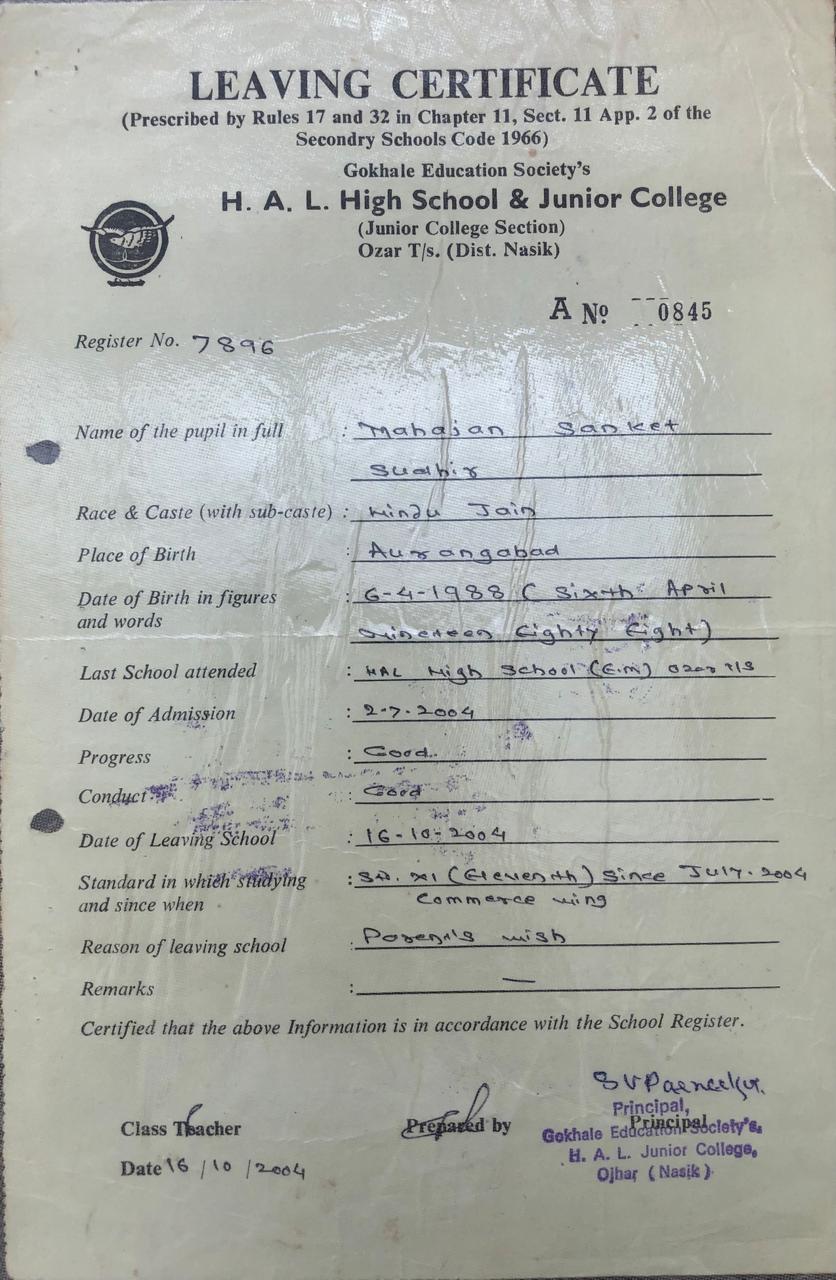 LEAVING CERTIFICATE
(Prescribed by Rules 17 and 32 in Chapter 11, Sect. 11 App. 2 of the
Secondry Schools Code 1966)
Gokhale Education Society's
H. A. L. High School & Junior College
(Junior College Section)
Ozar T/s. (Dist. Nasik)
A No 0845
Register No. 7896
Name of the pupil in full : Mahajan Sanket
Sudhir
Race & Caste (with sub-caste) : Hindu Jain
Place of Birth : Aurangabad
Date of Birth in figures : 6-4-1988 ( Sixth April
and words Nineteen Eighty Eight)
Last School attended : HAL High School (E.M) Ozar T/S
Date of Admission : 2-7-2004
Progress : Good.
Conduct : Good
Date of Leaving School : 16-10-2004
Standard in which studying : Std. XI (Eleventh) Since July-2004
and since when Commerce wing
Reason of leaving school : Parent's wish
Remarks : —
Certified that the above Information is in accordance with the School Register.
Class Teacher Prepared by Principal
Date 16/10/2004
Principal,
Gokhale Education Society's.
H. A. L. Junior College,
Ojhar (Nasik)